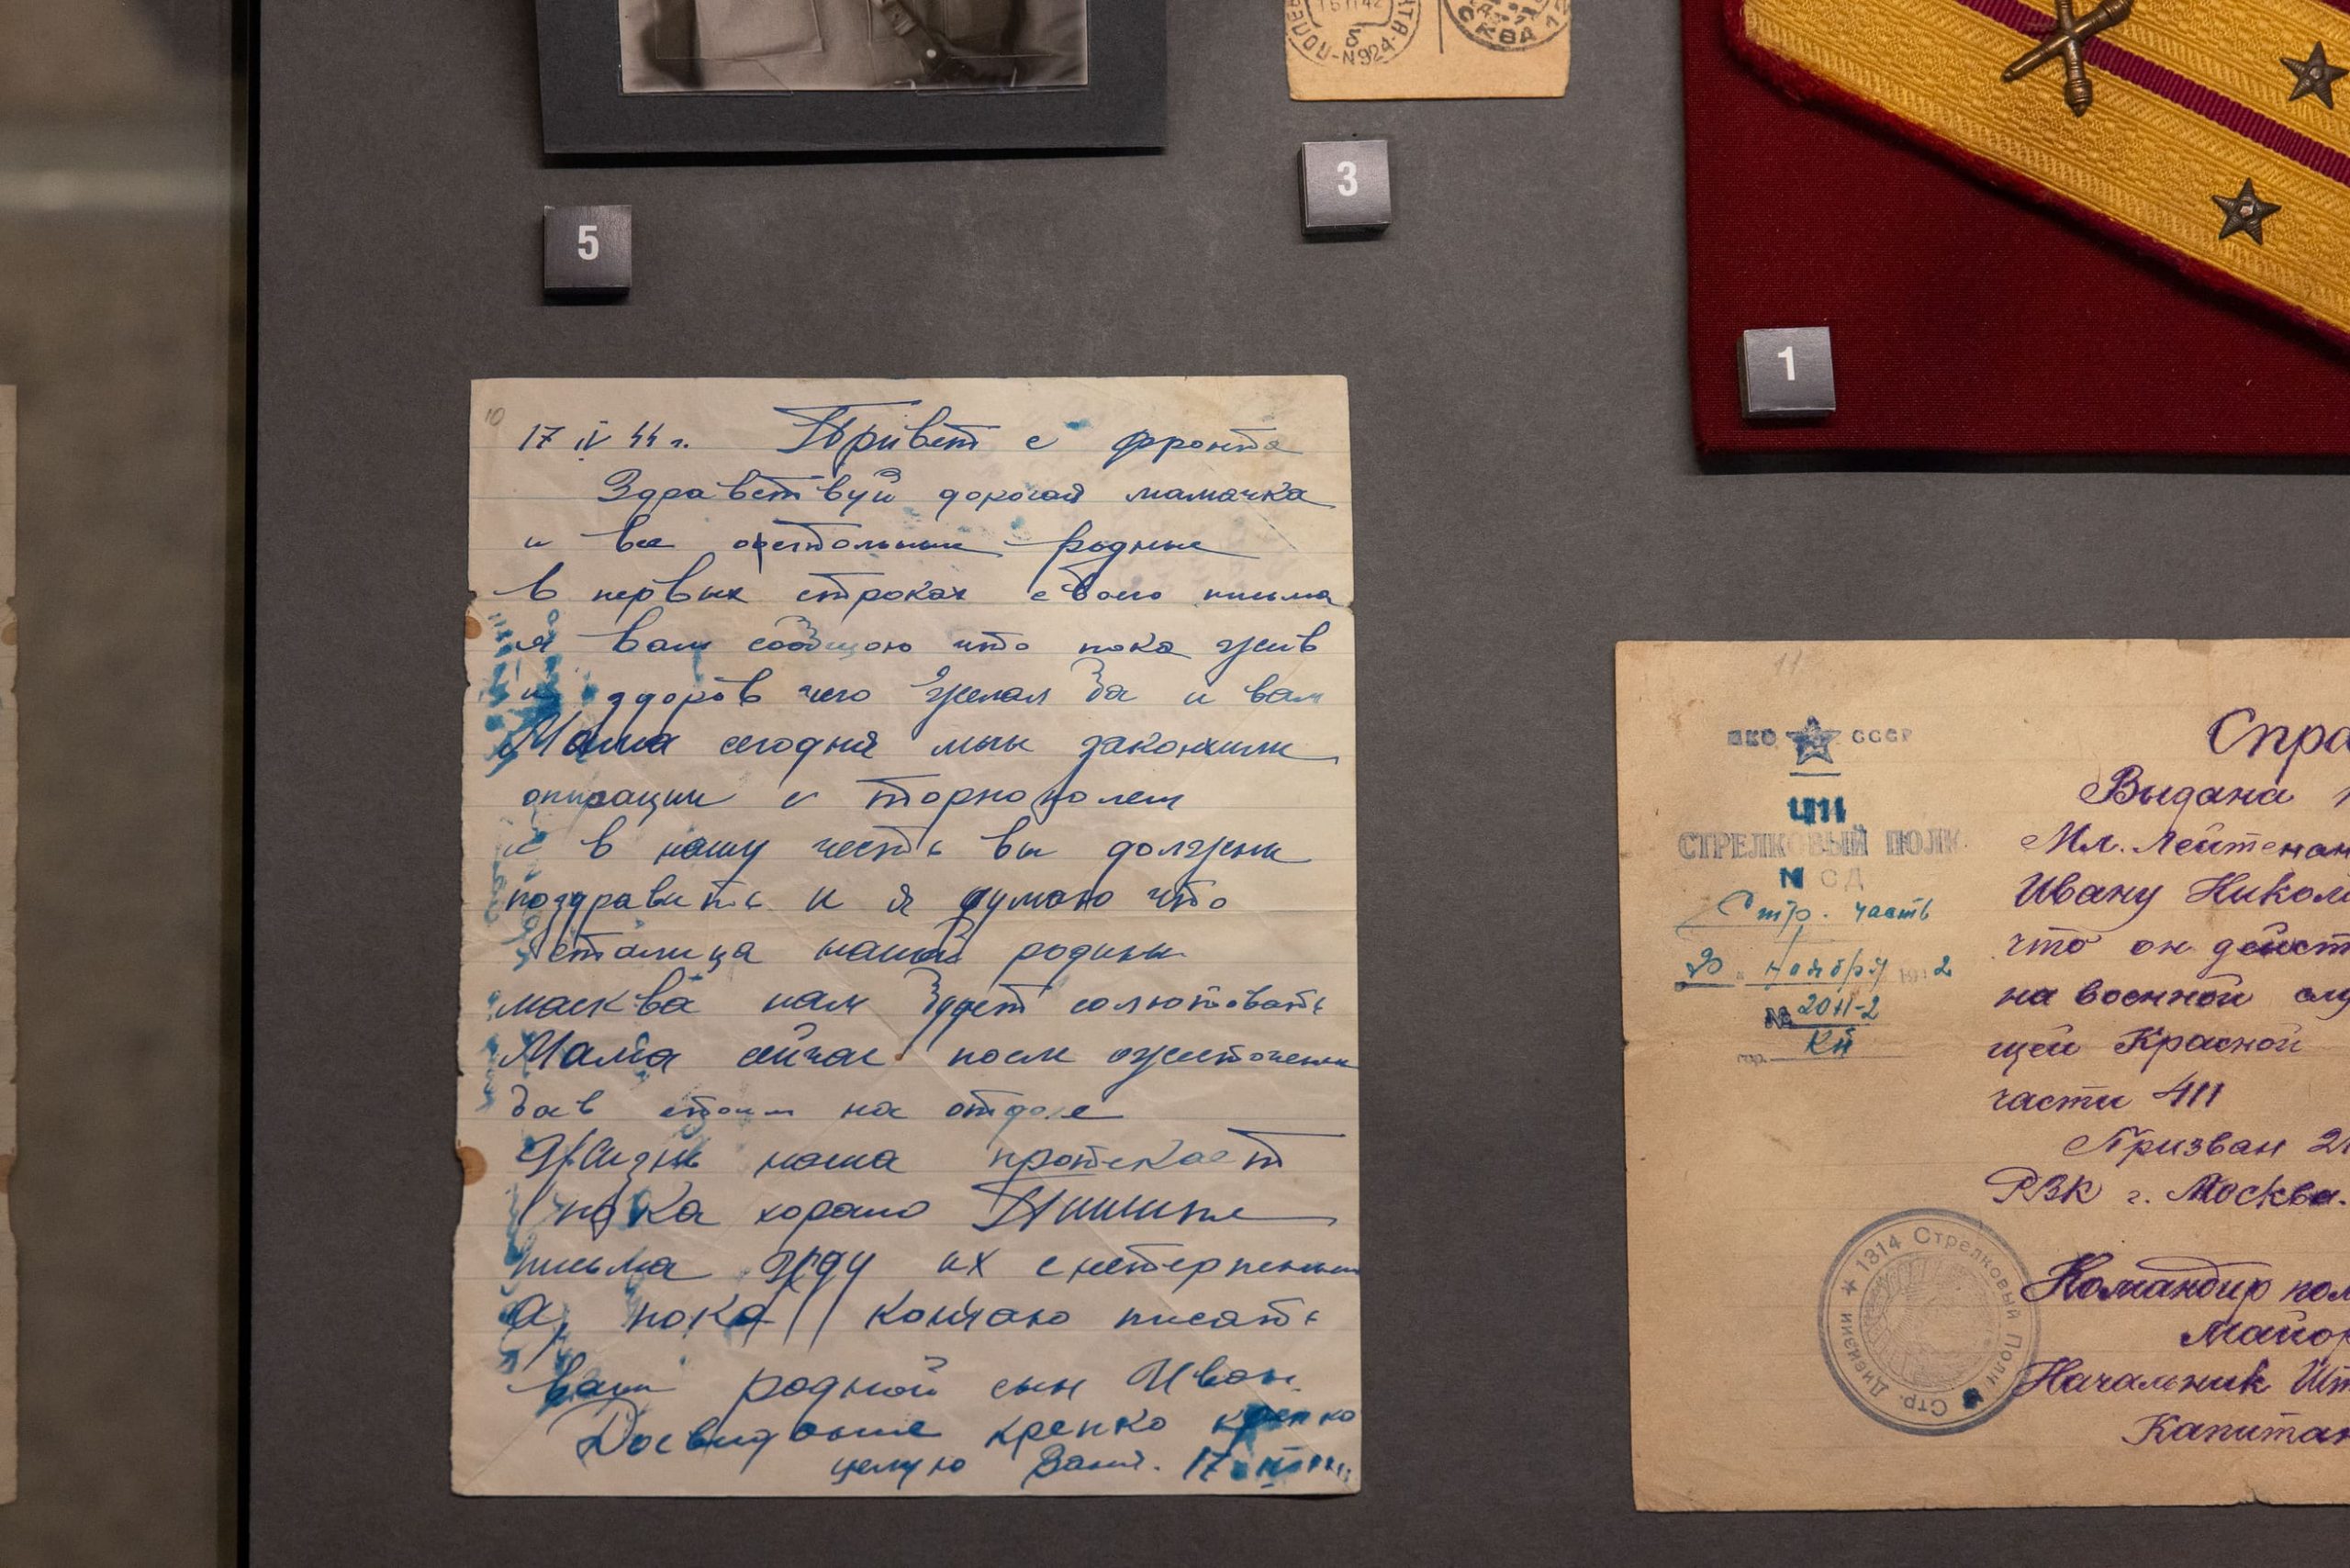 5
3
1
ПОЛЕВ
-N924-
СКВА
10
17 IV 44 г. Привет с фронта
Здравствуй дорогая мамачка
и все остольные родные
В первых строках своего письма
я вам сообщаю что пока жив
и здоров чего желал бы и вам
Мама сегодня мы закончили
опирации с торнополем
и в нашу честь вы должны
поздравить и я думаю что
сталица нашей родины
масква нам будет солютовать
Мама сийчас после ожисточеных
боев стоим на отдыхе
Жизнь наша протекает
пока хорашо Пишите
письма жду их снетерпением
а пока кончаю писать
ваш родной сын Иван.
Досвидание крепко крепко
целую Ваня. 17
11
НКО СССР
411
СТРЕЛКОВЫЙ ПОЛК
СД
Стр. часть
20 ноября 1942
№ 2011-2
гор.
Спра
Выдана
Мл. Лейтенан
Ивану Никол
что он дейст
на военной слу
щей Красной
части 411
Призван 2
РВК г. Москва.
Командир пол
Майор
Начальник Шт
Капитан
1314 Стрелковый Полк Стр. Дивизии